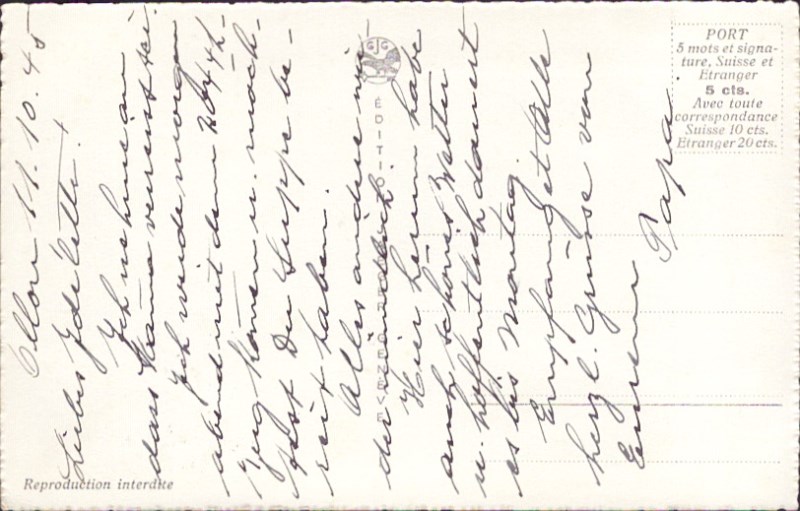 Ollon 11.10.45
Liebes Idelette!
Ich nehme an
dass Mama verreist sei.
Ich werde morgen
abend mit dem 20 44h-
Zug kommen u. mach-
test Du Suppe be-
reit haben.
Alles andere wie-
der mündlich.
Hier herum habe
auch schönes Wetter
u. hoffentlich dauert
es bis Montag.
Empfanget Alle
herzl. Grüsse von
Eurem
Papa.
PORT
5 mots et signa-
ture, Suisse et
Etranger
5 cts.
Avec toute
correspondance
Suisse 10 cts.
Etranger 20 cts.
GJG
EDITIO GENEVE
Reproduction interdite